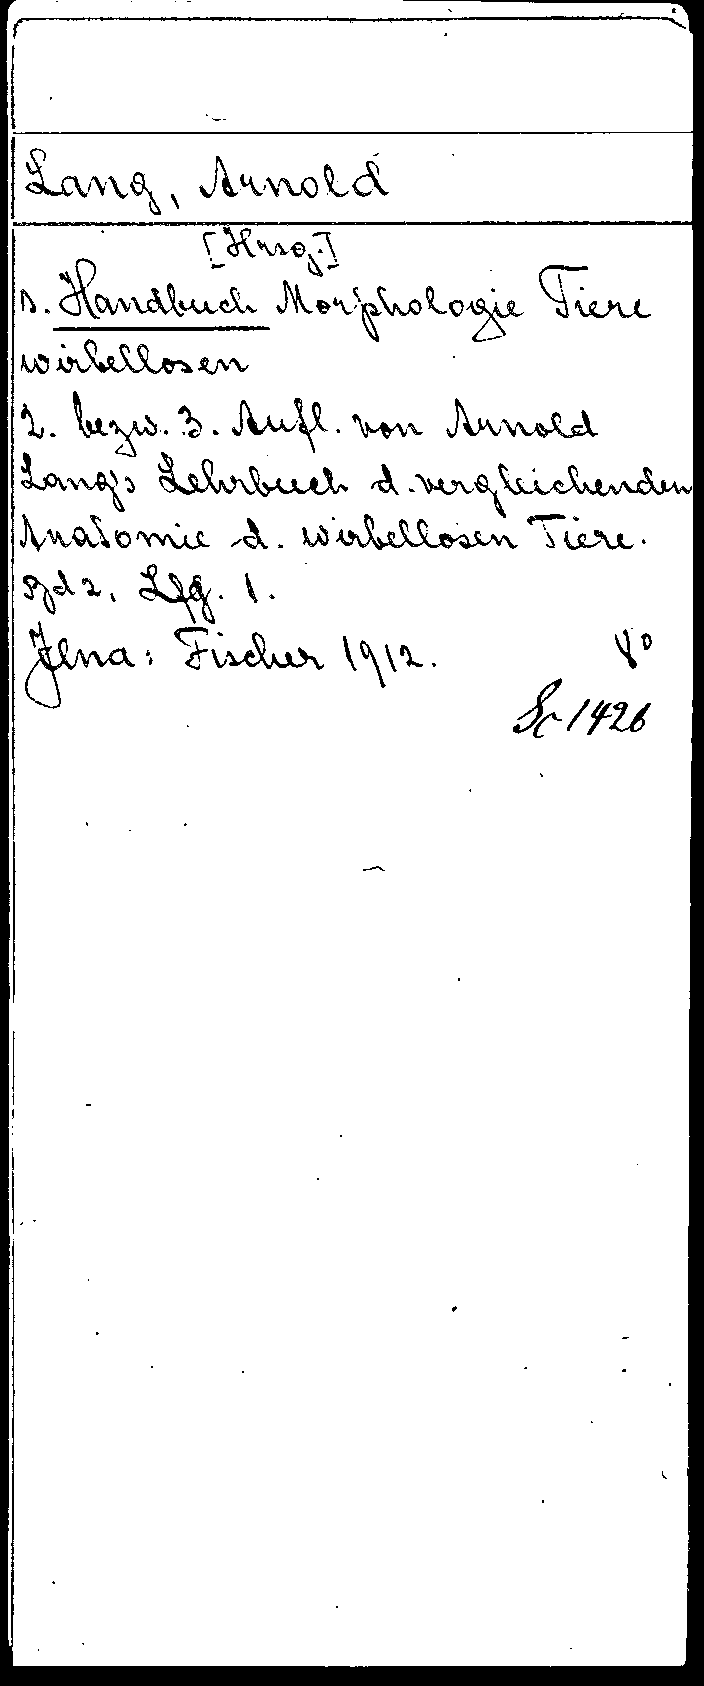 Lang, Arnold
[Hrsg.]
s. Handbuch Morphologie Tiere
wirbellosen
2. bezw. 3. Aufl. von Arnold
Lang's Lehrbuch d. vergleichenden
Anatomie d. wirbellosen Tiere.
Bd 2, Lfg. 1.
Jena: Fischer 1912. 8°
Sc 1426